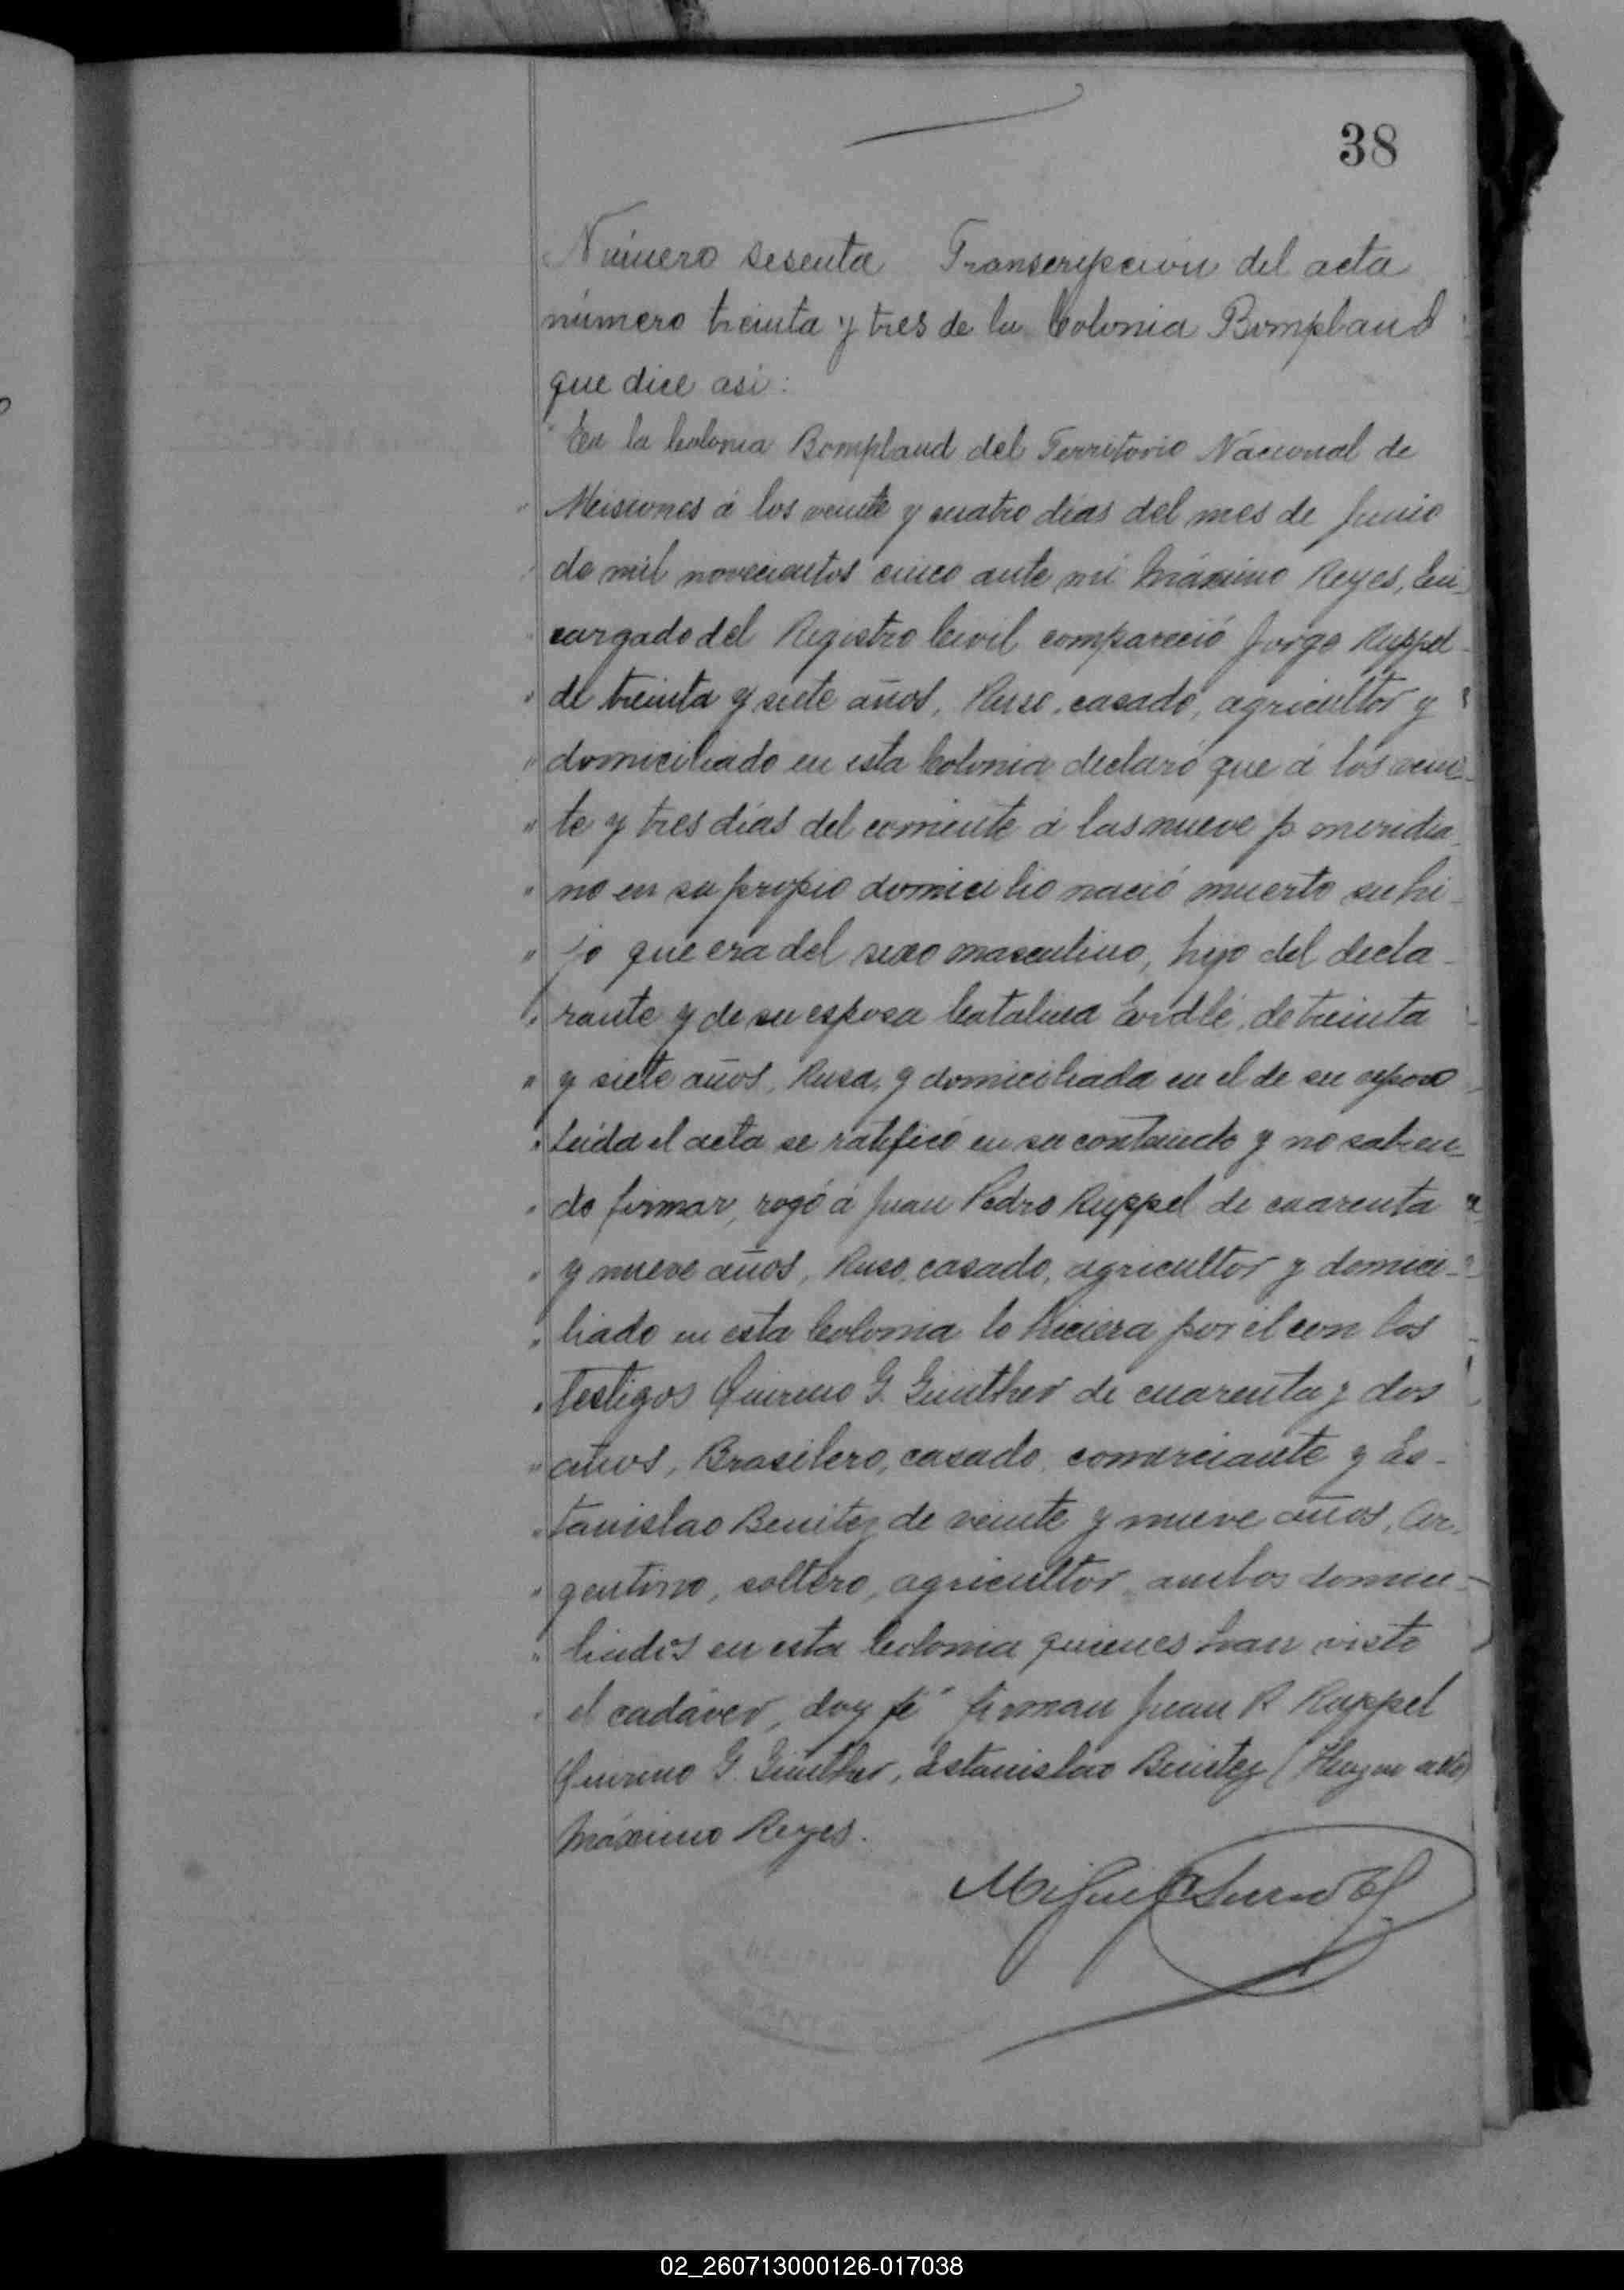 38
Número sesenta Transcripción del acta
número treinta y tres de la Colonia Bompland
que dice asi:
" En la Colonia Bompland del Territorio Nacional de
" Misiones á los veinte y cuatro días del mes de Junio
" de mil novecientos cinco ante mi Máximo Reyes, En-
" cargado del Registro Civil compareció Jorge Ruppel
" de treinta y siete años, Ruso, casado, agricultor y
" domiciliado en esta Colonia declaró que á los vein-
" te y tres días del corriente á las nueve p. meridia-
" no en su propio domicilio nació muerto su hi-
" jo que era del sexo masculino, hijo del decla-
" rante y de su esposa Catalina Eidle, de treinta
" y siete años, Rusa, y domiciliada en el de su esposo
" Leída el acta se ratificó en su contenido y no sabien-
" do firmar, rogó á Juan Pedro Ruppel de cuarenta
" y nueve años, Ruso, casado, agricultor y domici-
" liado en esta Colonia lo hiciera por él con los
" testigos Quirino G. Günther de cuarenta y dos
" años, Brasilero, casado, comerciante y Es-
" tanislao Benitez de veinte y nueve años, Ar-
" gentino, soltero, agricultor, ambos domici-
" liados en esta Colonia quienes han visto
" el cadáver, doy fé" firman Juan P. Ruppel
Quirino G. Günther, Estanislao Benitez
Máximo Reyes.
Miguel
02_260713000126-017038